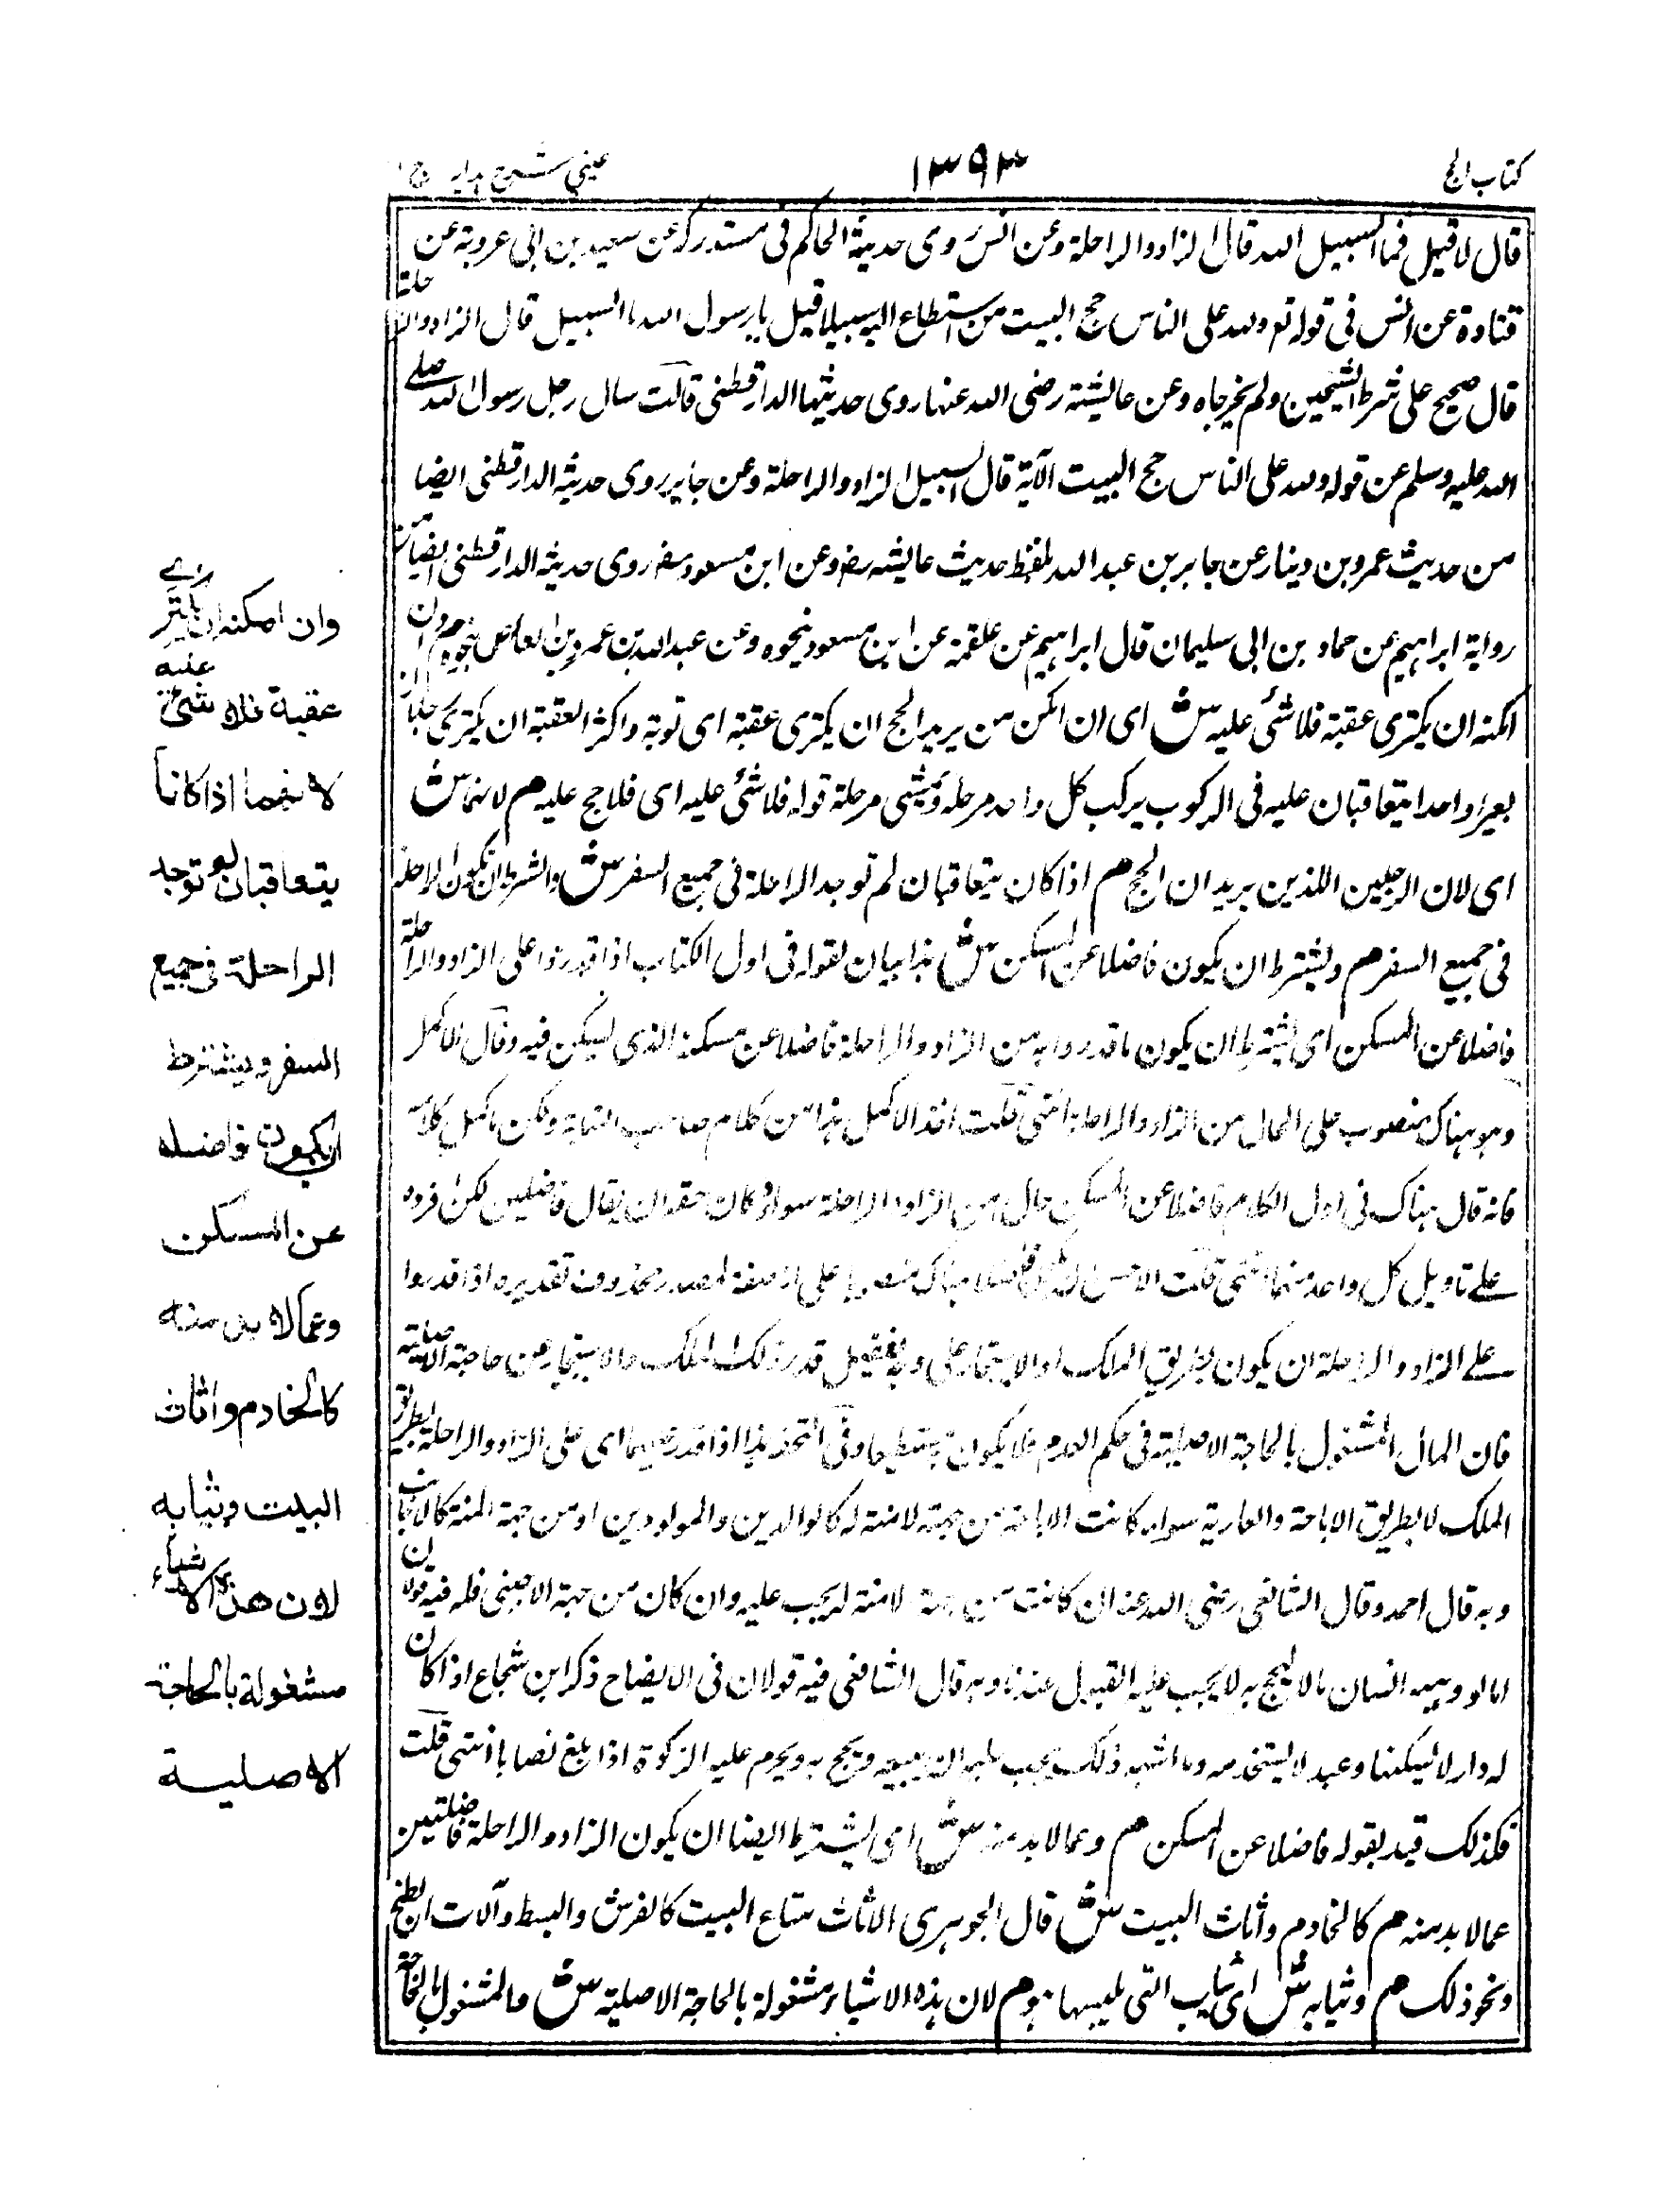 كتاب الحج
١٣٩٣
عيني شرح هدايه ج ١
قال لا قيل فما السبيل الله قال الزاد والراحلة وعن انس روى حديثه الحاكم فى مستدركه عن سعيد بن ابى عروبة عن
قتادة عن انس فى قوله تع ولله على الناس حج البيت من استطاع اليه سبيلا قيل يا رسول الله ما السبيل قال الزاد والراحلة
قال صحيح على شرط الشيخين ولم يخرجاه وعن عائشة رضى الله عنها روى حديثها الدارقطنى قالت سال رجل رسول الله صلى
الله عليه وسلم عن قوله ولله على الناس حج البيت الآية قال السبيل الزاد والراحلة وعن جابر روى حديثه الدارقطنى ايضا
من حديث عمرو بن دينار عن جابر بن عبد الله بلفظ حديث عائشه رضى وعن ابن مسعود رضى روى حديثه الدارقطنى ايضا من
رواية ابراهيم عن حماد بن ابى سليمان قال ابراهيم عن علقمة عن ابن مسعود بنحوه وعن عبد الله بن عمرو بن العاص بنحوه م وان
امكنه ان يكترى عقبة فلا شئ عليه ش اى ان امكن من يريد الحج ان يكترى عقبة اى نوبة واكثر العقبة ان يكترى رجلان
بعيرا واحدا يتعاقبان عليه فى الركوب يركب كل واحد مرحلة ويمشى مرحلة قوله فلا شئ عليه اى فلا حج عليه م لانهما ش
اى لان الرجلين اللذين يريدان الحج م اذا كان يتعاقبان لم توجد الراحلة فى جميع السفر ش والشرط ان تكون الراحلة
فى جميع السفر م ويشترط ان يكون فاضلا عن المسكن ش هذا بيان لقوله فى اول الكتاب اذا قدروا على الزاد والراحلة
فاضلا عن المسكن اى يشترط ان يكون ما قدروا به من الزاد والراحلة فاضلا عن مسكنه الذى يسكن فيه وقال الاكمل
وهو هناك منصوب على الحال من الزاد والراحلة انتهى قلت اخذ الاكمل هذا من كلام صاحب النهاية ولكن ما كمل كلامه
فانه قال هناك فى اول الكلام فاضلا عن المسكن حال من الزاد والراحلة سواء كان حقه ان يقال فاضلين لكن فرده
على تاويل كل واحد منهما انتهى قلت الاحسن ان يكون فاضلا هناك منصوبا على انه صفة لمصدر محذوف تقديره اذا قدروا
على الزاد والراحلة ان يكون بطريق الملك او الاستيجار على وجه يفضل قدر ذلك الملك والاستيجار عن حاجته الاصلية
فان المال المشغول بالحاجة الاصلية فى حكم العدم فلا يكون مستطيعا وفى التحفة هذا اذا قدر عليهما اى على الزاد والراحلة بطريق
الملك لا بطريق الاباحة والعارية سواء كانت الاباحة من جهة لا منة له كالوالدين والمولودين او من جهة المنة كالاجانب
وبه قال احمد وقال الشافعى رضى الله عنه ان كانت من جهة لا منة له يجب عليه وان كان من جهة الاجنبى فله فيه قولان
اما لو وهب انسان مالا ليحج به لا يجب عليه القبول عندنا وبه قال الشافعى فيه قولان فى الايضاح ذكر ابن شجاع اذا كان
له دار لا يسكنها وعبد لا يستخدمه وما اشبه ذلك يجب عليه ان يبيعه ويحج به ويحرم عليه الزكوة اذا بلغ نصابا انتهى قلت
فكذلك قيد بقوله فاضلا عن المسكن م وعما لا بد منه ش اى يشترط ايضا ان يكون الزاد والراحلة فاضلتين
عما لا بد منه م كالخادم واثاث البيت ش قال الجوهرى الاثاث متاع البيت كالفرش والبسط وآلات الطبخ
ونحو ذلك م وثيابه ش اى ثياب التى يلبسها هو م لان هذه الاشياء مشغولة بالحاجة الاصلية ش والمشغول بالحاجة
وان امكنه ان يكترى
عقبة فلا شئ عليه
لانهما اذا كانا
يتعاقبان لم توجد
الراحلة فى جميع
السفر ويشترط
ان يكون فاضلا
عن المسكن
وعما لا بد منه
كالخادم واثاث
البيت وثيابه
لان هذه الاشياء
مشغولة بالحاجة
الاصلية